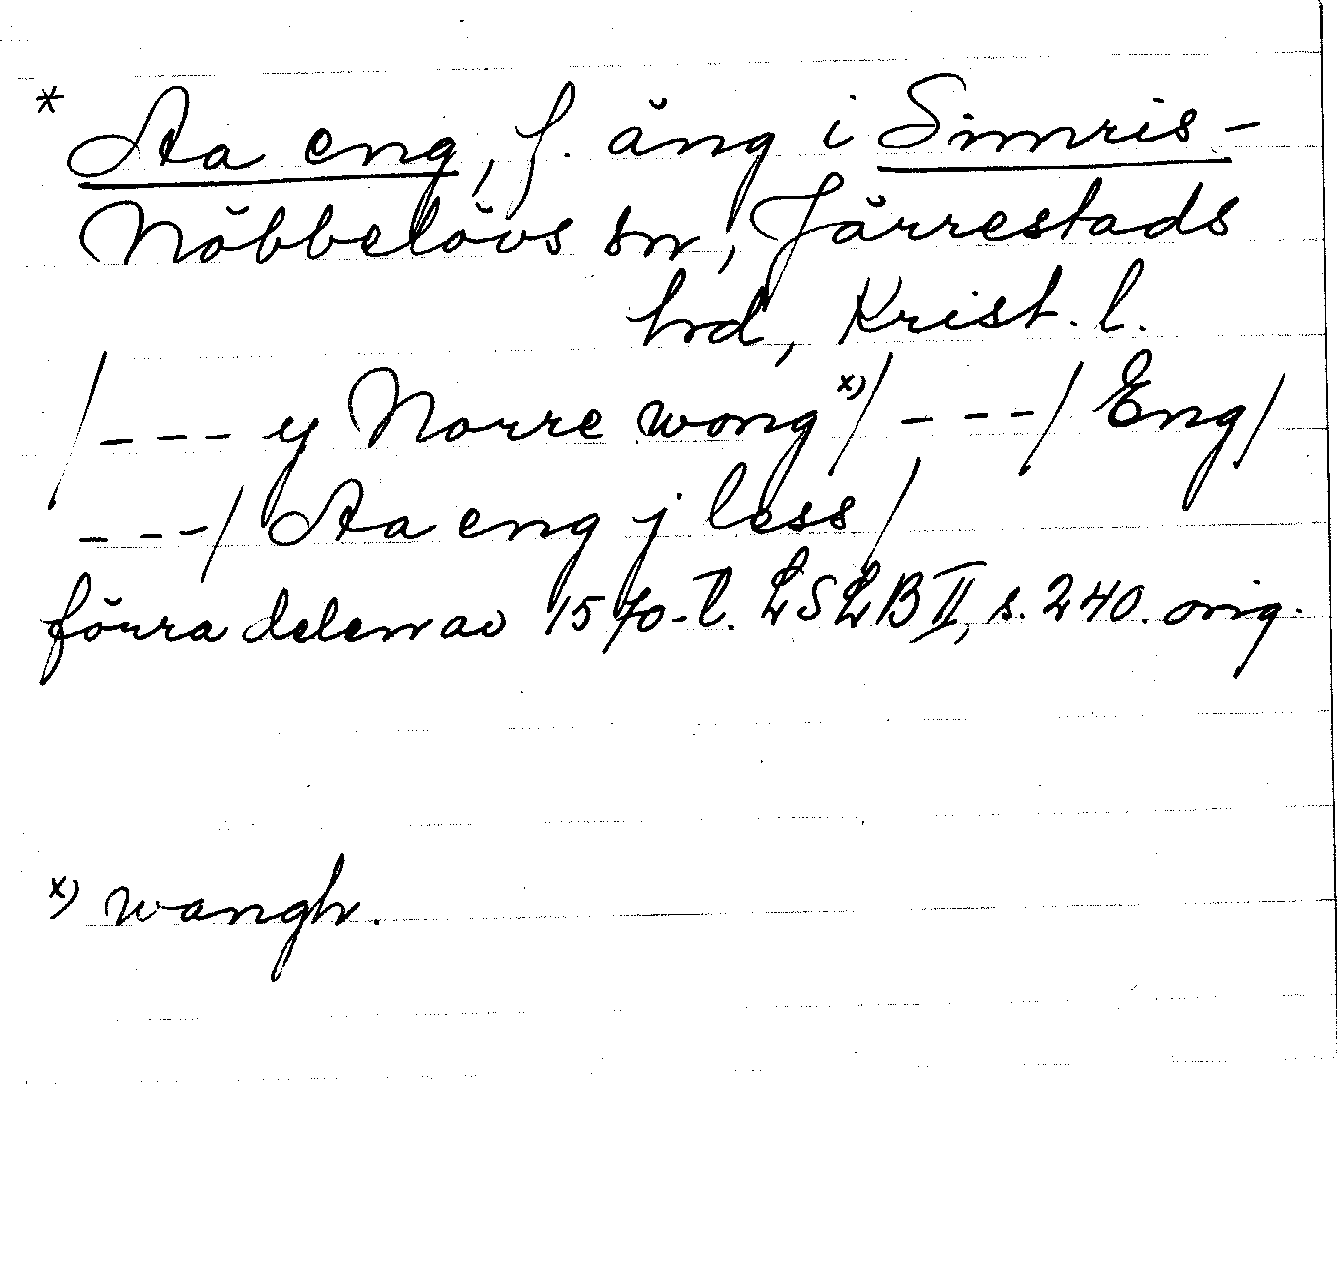 * Aa eng, f. äng i Simris-
Nöbbelövs sn, Järrestads
hd, Krist. l.
/--- y Norre wong x)/ ---/ Eng/
---/ Aa eng j less/
förra delen av 1570-t. LSLB II, s. 240. orig.
x) wangh.